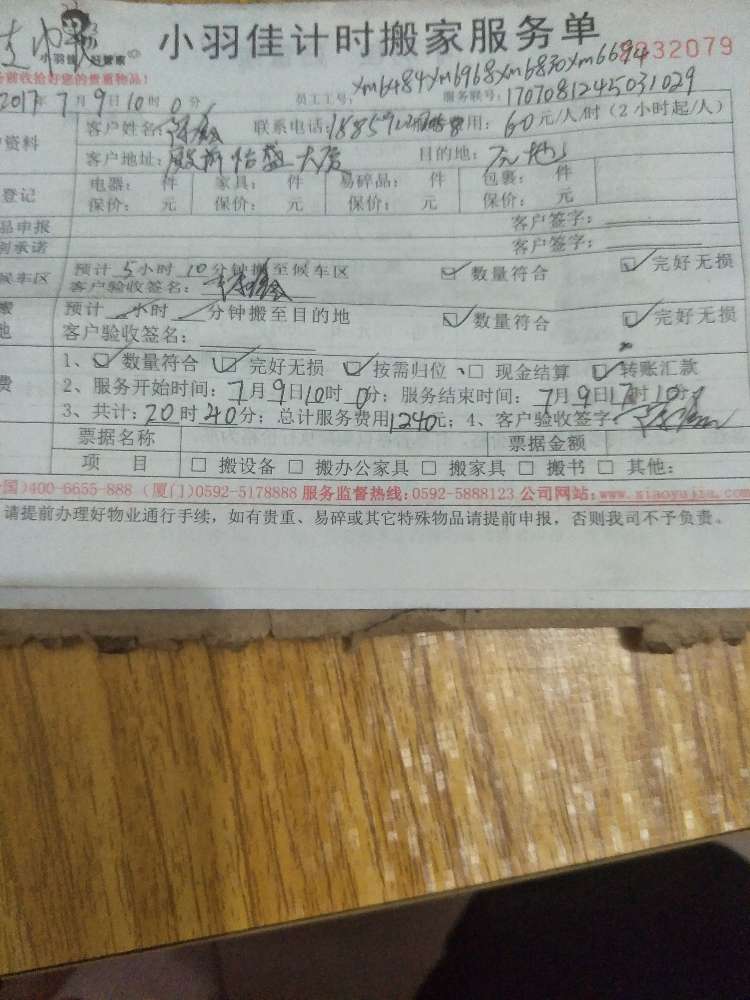 小羽佳计时搬家服务单
小羽佳 好管家 32079
前收拾好您的贵重物品!
2017年7月9日10时0分 员工工号: xm6484 xm6968 xm6830 xm6694 服务联号: 1707081245031029
资料 客户姓名: 联系电话: 用: 60元/人/时(2小时起/人)
客户地址: 殿前怡盛大厦 目的地:
登记 电器: 件 家具: 件 易碎品: 件 包裹: 件
保价: 元 保价: 元 保价: 元 保价: 元
品申报 客户签字:
则承诺 客户签字:
候车区 预计5小时10分钟搬至候车区 ☑数量符合 ☑完好无损
客户验收签名:
搬 预计 小时 分钟搬至目的地 ☑数量符合 ☑完好无损
地 客户验收签名:
1、☑数量符合 ☑完好无损 ☑按需归位、☐现金结算 ☑转账汇款
费 2、服务开始时间: 7月9日10时0分; 服务结束时间: 7月9日17时10分
3、共计: 20时40分; 总计服务费用1240元; 4、客户验收签字
票据名称 票据金额
项 目 ☐搬设备 ☐搬办公家具 ☐搬家具 ☐搬书 ☐其他:
国)400-6655-888 (厦门)0592-5178888 服务监督热线:0592-5888123 公司网站:www.xiaoyujia.com
请提前办理好物业通行手续, 如有贵重、易碎或其它特殊物品请提前申报, 否则我司不予负责。